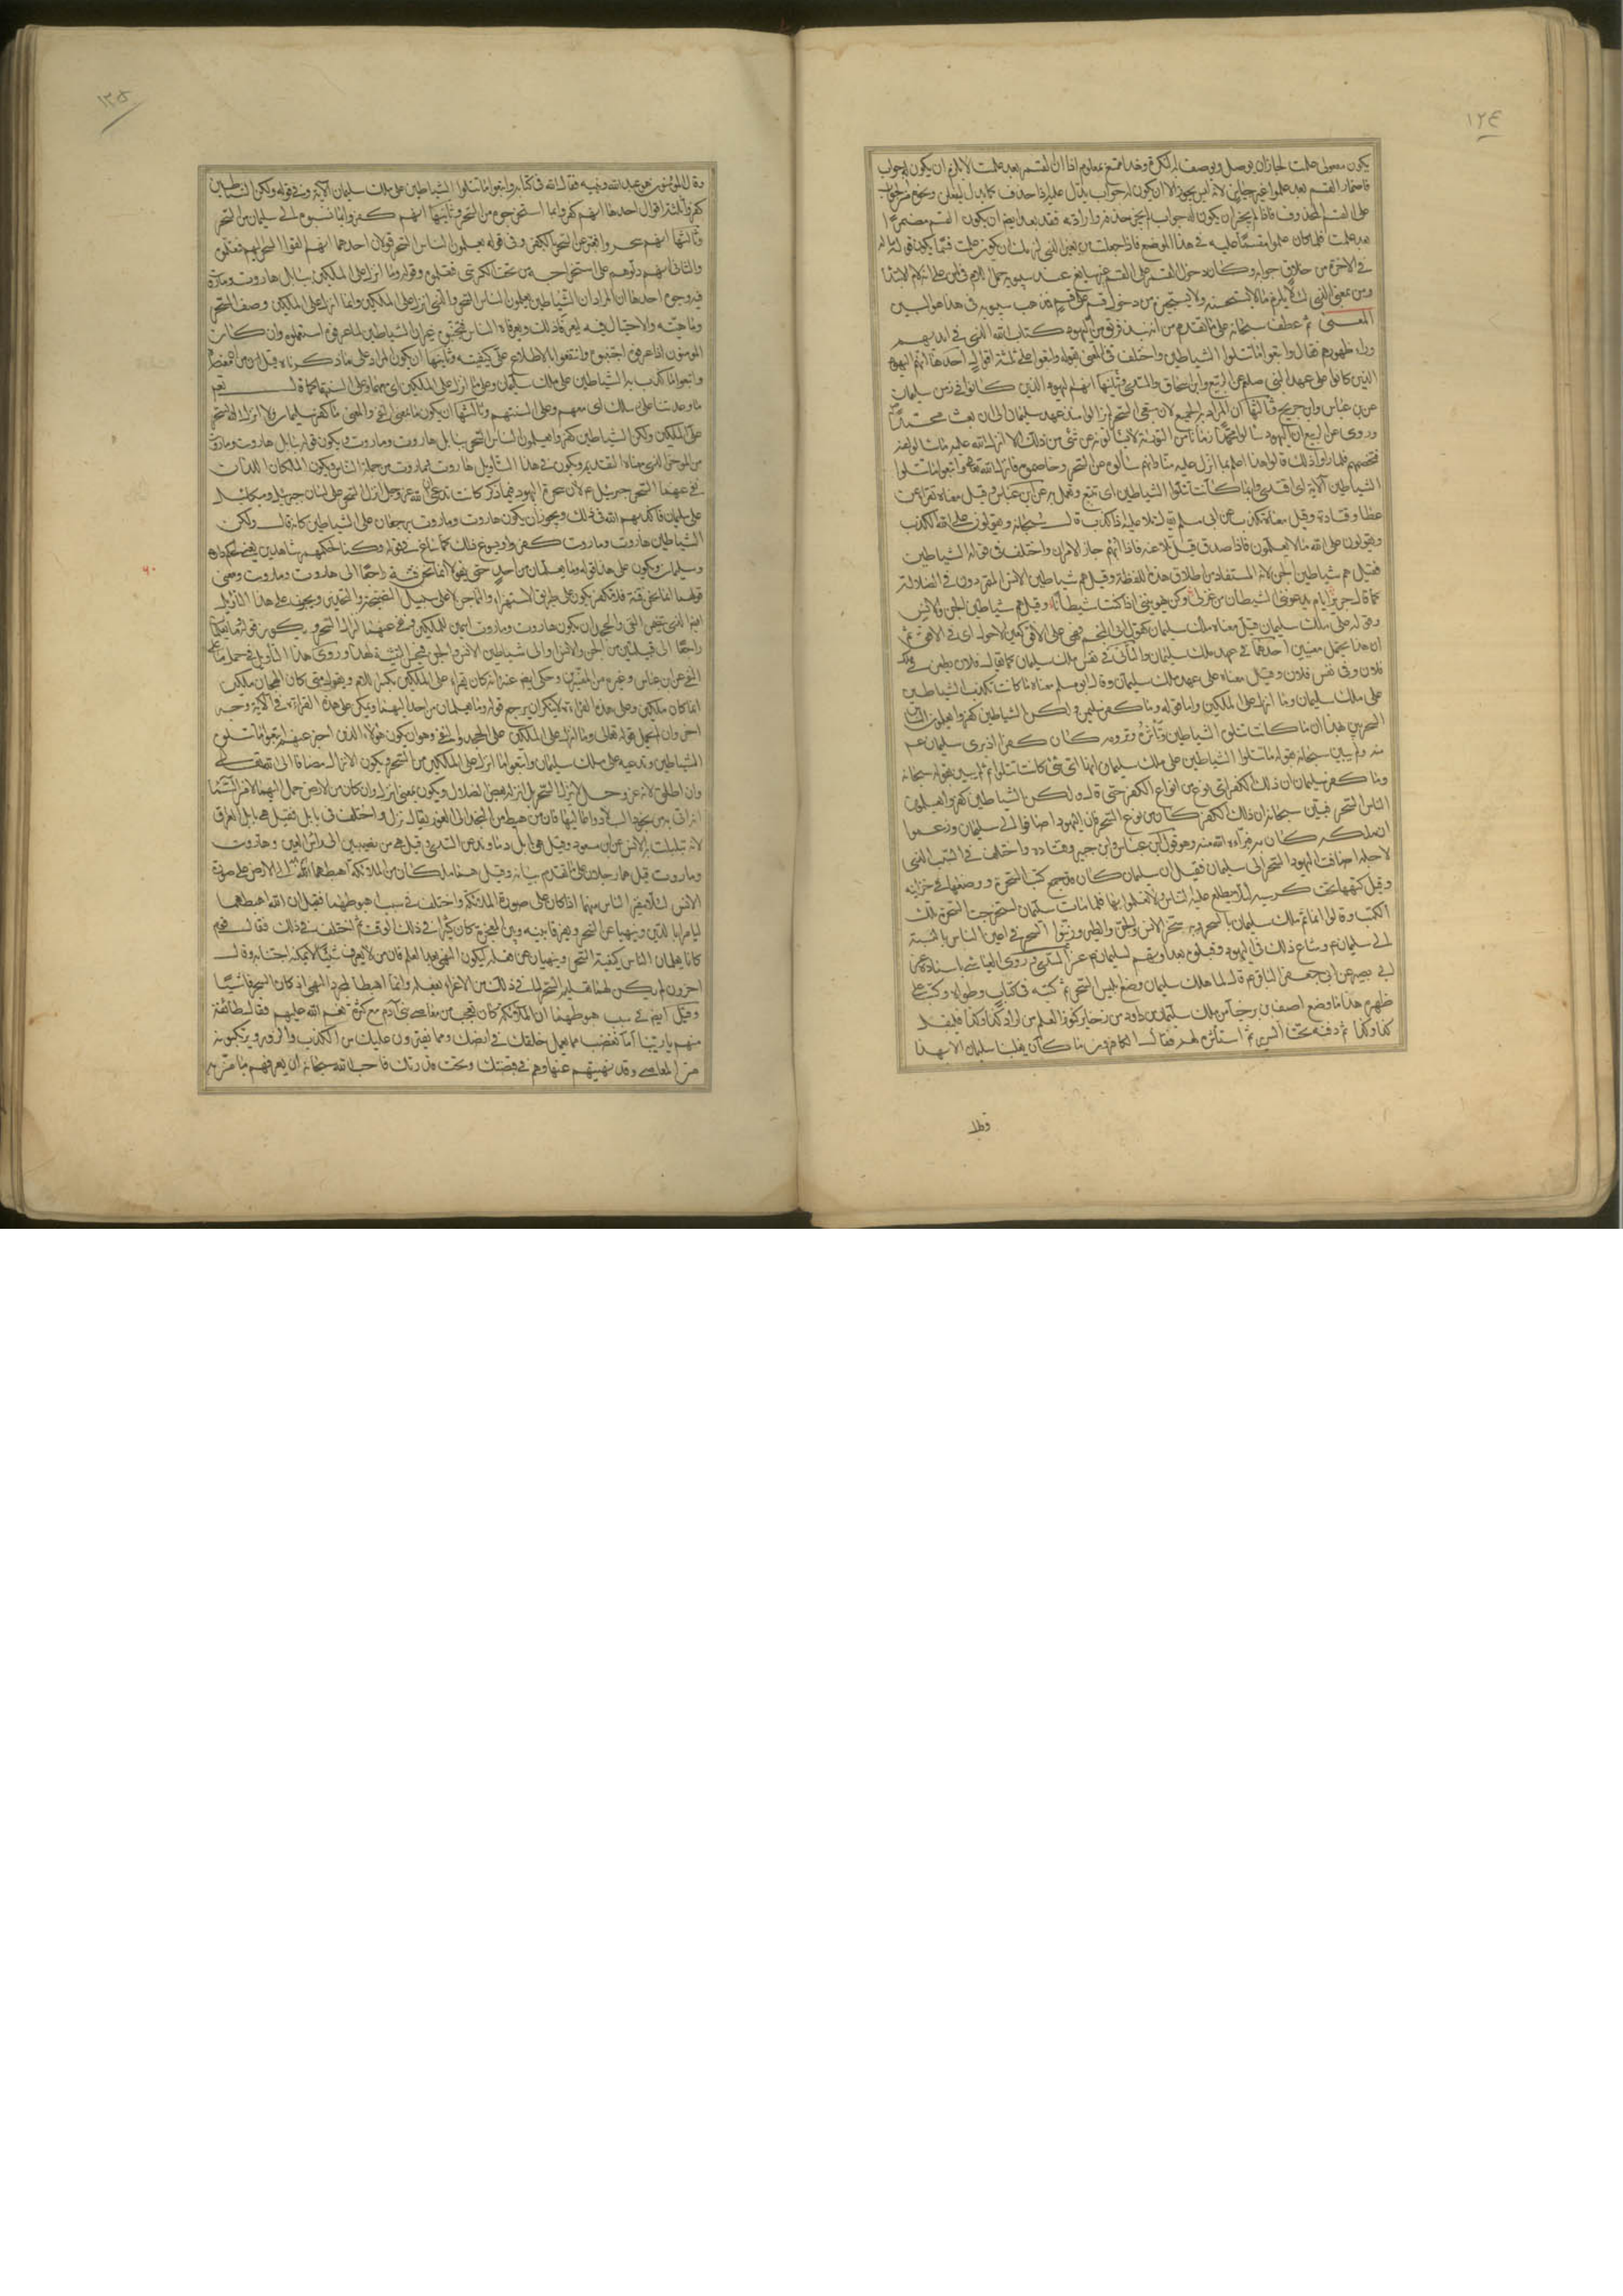 ١٢٤
يكون معمولى علمت لجاز ان يوصل ويوصف لنكرة وغير ممتنع اذا ان القسم بعد علمت لا يلزم ان يكون له جواب
على القسم المحذوف فاذا لم يجز ان يكون له جواب لم يجز حذفه وارادته فقد بعد ايضا ان يكون القسم مضمرا
بعد علمت فلما كان علموا مقسما عليه في هذا الموضع فاذا جعلت من بمعنى الذي لم يكون علمت قسما يكون قوله ما له
في الاخرة من خلاق جوابه
المعنى ثم عطف سبحانه على ما تقدم من انه نبذ فريق من اليهود كتاب الله الذي في ايديهم
وراء ظهورهم فقال واتبعوا ما تتلوا الشياطين واختلف في المعني بقوله واتبعوا على ثلثة اقوال احدها انهم اليهود
الذين كانوا على عهد النبي صلم عن الربيع وابن اسحاق والسدي وثانيها انهم اليهود الذين كانوا في زمن سليمان
عن ابن عباس وابن جريج وثالثها ان المراد به الجميع لان متبعي السحر لم يزالوا منذ عهد سليمان الى ان بعث محمدا
وروى عن الربيع ان اليهود سالوا محمدا زمانا من التورية لا يسالونه عن شئ من ذلك الا انزل الله عليه ما سالوا عنه
فخصمهم فلما راوا ذلك قالوا هذا اعلم بما انزل علينا منا وانهم سالوه عن السحر وخاصموه فانزل الله تعالى واتبعوا ما تتلوا
الشياطين الاية اى اقتدوا بما كانت تتلوا الشياطين اى تتبع وتعمل به عن ابن عباس وقيل معناه تقرا عن
عطا وقتادة وقيل معناه تكذب عن ابى مسلم يقال تلا عليه اذا كذب قال سبحانه ويقولون على الله الكذب
ويقولون على الله ما لا يعلمون فاذا صدق قيل تلا عنه فاذا ابهم جاز الامران واختلف في قوله الشياطين
فقيل هم شياطين الجن لانه المستفاد من اطلاق هذه اللفظة وقيل هم شياطين الانس المتمردون في الضلالة
كما قال جرير ايام يدعونني الشيطان من غزلي وكن يهوينني اذ كنت شيطانا وقيل هم شياطين الجن والانس
وقوله على ملك سليمان قيل معناه في ملك سليمان كقول ابى النجم فهي على الافق كعين الاحول اى في الافق ثم
ان هذا يحتمل معنيين احدهما في عهد ملك سليمان والثاني في نفس ملك سليمان كما يقال فلان يطعن في ملك
فلان وفي نفس فلان وقيل معناه على عهد ملك سليمان وقال ابو مسلم معناه ما كانت تكذب الشياطين
على ملك سليمان وما انزل على الملكين واما قوله وما كفر سليمان ولكن الشياطين كفروا يعلمون الناس
السحر بين بهذا ان ما كانت تتلوه الشياطين وتاثره وترويه كان كفرا اذ برى سليمان عم
منه ولم يبين سبحانه بقوله ما تتلوا الشياطين على ملك سليمان انها اى شئ كانت تتلوا ثم لم يبين بقوله سبحانه
وما كفر سليمان ان ذلك الكفر اى نوع من انواع الكفر حتى قال ولكن الشياطين كفروا يعلمون
الناس السحر فبين سبحانه ان ذلك الكفر كان من نوع السحر فان اليهود اضافوا الى سليمان وزعموا
ان ملكه كان به فبراه الله منه وهو قول ابن عباس وابن جبير وقتادة واختلف في السبب الذي
لاجله اضافت اليهود السحر الى سليمان فقيل ان سليمان كان قد جمع كتب السحرة ووضعها في خزانته
وقيل كتمها تحت كرسيه لئلا يطلع عليها الناس ولا يعملوا بها فلما مات سليمان استخرجت السحرة تلك
الكتب وقالوا انما تم ملك سليمان بالسحر وبه سخر الانس والجن والطير وزينوا السحر في اعين الناس بالنسبة
الى سليمان وشاع ذلك في اليهود وقبلوه لعداوتهم لسليمان عم عن السدي وروى العياشى باسناده عن
ابى بصير عن ابى جعفر الباقر عم قال لما هلك سليمان وضع ابليس السحر ثم كتبه في كتاب وطواه وكتب على
ظهره هذا ما وضع اصف بن برخيا من ملك سليمان بن داود من ذخاير كنوز العلم من اراد كذا وكذا فليفعل
كذا وكذا ثم دفنه تحت السرير ثم استثاره لهم فقال الكافرون ما كان يغلبنا سليمان الا بهذا
وقال
١٢٥
وقال المؤمنون هو عبد الله ونبيه فقال الله في كتابه واتبعوا ما تتلوا الشياطين على ملك سليمان الاية وفي قوله ولكن الشياطين
كفروا ثلثة اقوال احدها انهم كفروا بما استخرجوه من السحر وثانيها انهم كفروا بما نسبوه الى سليمان من السحر
وثالثها انهم سحروا فعبر عن السحر بالكفر وفي قوله يعلمون الناس السحر قولان احدهما انهم القوا السحر اليهم فتعلموه
والثاني انهم دلوهم على استخراجه من تحت الكرسى فتعلموه وقوله وما انزل على الملكين ببابل هاروت وماروت
فيه وجوه احدها ان المراد ان الشياطين يعلمون الناس السحر والذي انزل على الملكين وانما انزل على الملكين وصف السحر
وماهيته والاحتيال فيه ليعرفا ذلك ويعرفاه الناس فيجتنبوه غير ان الشياطين لما عرفوه استعملوه وان كان
المؤمنون اذا عرفوه اجتنبوه وانتفعوا بالاطلاع على كيفيته وثانيها ان يكون المراد على ما ذكرناه قبل
واتبعوا ما كذب به الشياطين على ملك سليمان وعلى ما انزل على الملكين اى معهما وعلى السنتهما كما قال
ما وعدتنا على رسلك اى معهم وعلى السنتهم وثالثها ان يكون ما بمعنى النفي والمعنى وما كفر سليمان ولا انزل الله السحر
على الملكين ولكن الشياطين كفروا يعلمون الناس السحر ببابل هاروت وماروت ويكون قوله ببابل هاروت وماروت
من المؤخر الذي معناه التقديم ويكون في هذا التاويل هاروت وماروت من جملة الناس ويكون الملكان اللذان
نفى عنهما السحر جبرئيل وميكائيل لان سحرة اليهود فيما ذكر كانت تدعى ان الله عز وجل انزل السحر على لسان جبرئيل وميكائيل
على سليمان فاكذبهم الله في ذلك ويجوز ان يكون هاروت وماروت يرجعان على الشياطين كانه قال ولكن
الشياطين هاروت وماروت كفروا ويسوغ ذلك كما ساغ في قوله وكنا لحكمهم شاهدين يعنى حكم داود
وسليمان ويكون على هذا قوله وما يعلمان من احد حتى يقولا انما نحن فتنة راجعا الى هاروت وماروت ومعنى
قولهما انما نحن فتنة فلا تكفر يكون على طريق الاستهزاء والتماجن لا على سبيل النصيحة والتحذير ويجوز على هذا التاويل
ايضا الذي يتضمن النفي والجحد ان يكون هاروت وماروت اسمين للملكين ونفى عنهما انزال السحر ويكون قوله وما يعلمان
راجعا الى قبيلتين من الجن والانس او الى شياطين الانس والجن فتحسن التثنية لهذا وروى هذا التاويل في حمل ما على
النفي عن ابن عباس وغيره من المفسرين وحكى ايضا عنه انه كان يقرا على الملكين بكسر اللام ويقول متى كان العلجان ملكين
انما كانا ملكين وعلى هذه القراءة لا ينكر ان يرجع قوله وما يعلمان من احد اليهما ويمكن على هذه القراءة في الاية وجه
اخر وان لم يحمل قوله تعالى وما انزل على الملكين على الجحد والنفي وهو ان يكون هؤلاء الذين اخبر عنهم اتبعوا ما تتلوه
الشياطين وتدعيه على ملك سليمان واتبعوا ما انزل على الملكين من السحر ويكون الانزال مضافا الى الله تعالى
وان اطلق لانه عز وجل لا ينزل السحر بل انزله بعض الضلال ويكون معنى انزل وان كان من الارض حمل اليهما لا من السماء
انه اتى به من نجود البلاد واعاليها فان من هبط من النجد الى الغور يقال نزل واختلف في بابل فقيل هي بابل العراق
لانه تبلبلت به الالسن عن ابن مسعود وقيل هي بابل دماوند عن السدي وقيل هي من نصيبين الى راس العين وهاروت
وماروت قيل هما رجلان على ما تقدم بيانه وقيل هما ملكان من الملائكة اهبطهما الله الى الارض على صورة
الانس لئلا ينفر الناس منهما اذا كانا على صورة الملائكة واختلف في سبب هبوطهما فقيل ان الله اهبطهما
ليامرا بالدين وينهيا عن السحر ويفرقا بينه وبين المعجزة وكان كثيرا في ذلك الوقت ثم اختلف في ذلك فقال قوم
كانا يعلمان الناس كيفية السحر وينهيان عن فعله ليكون النهي بعد العلم فان من لا يعرف شيئا لا يمكنه اجتنابه وقال
اخرون لم يكن لهما تعليم السحر لما في ذلك من الاغراء بفعله وانما اهبطا لمجرد النهي اذ كان السحر فاشيا
وقيل ايضا في سبب هبوطهما ان الملائكة كان تعجب من معاصي بني آدم مع كثرة نعم الله عليهم فقال طائفة
منهم يا ربنا اما تغضب مما يعمل خلقك في ارضك ومما يفترون عليك من الكذب والزور ويرتكبونه
من المعاصي وقد نهيتهم عنها وهم في قبضتك وتحت قدرتك فاحب الله سبحانه ان يعرفهم ما من به